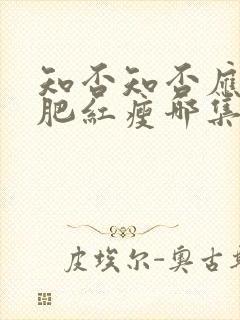 知否知否应
肥红瘦那集
皮埃尔-奥古斯